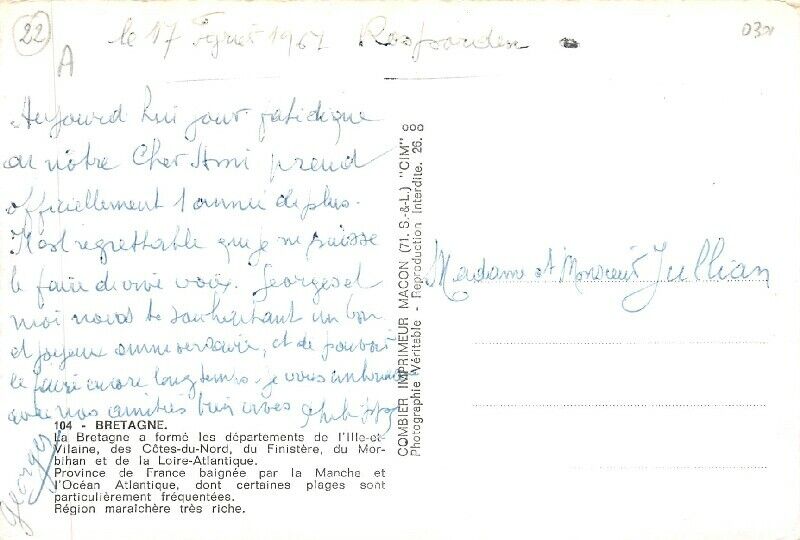 22
A
le 17 1967 Rosporden
Aujourd'hui jour fatidique
où nôtre Cher Ami prend
officiellement 1 année de plus.
Il est regrettable que je ne puisse
le faire de vive voix. Georges et
moi nous te souhaitant un bon
et joyeux anniversaire, et de pouvoir
le faire encore longtemps. je vous
avec nos amitiés très vives
Georges
104 - BRETAGNE.
La Bretagne a formé les départements de l'Ille-et-
Vilaine, des Côtes-du-Nord, du Finistère, du Mor-
bihan et de la Loire-Atlantique.
Province de France baignée par la Manche et
l'Océan Atlantique, dont certaines plages sont
particulièrement fréquentées.
Région maraîchère très riche.
COMBIER IMPRIMEUR MACON (71. S.-&-L.) "CIM"
Photographie Véritable - Reproduction Interdite. 26. 8
Madame et Monsieur Jullian